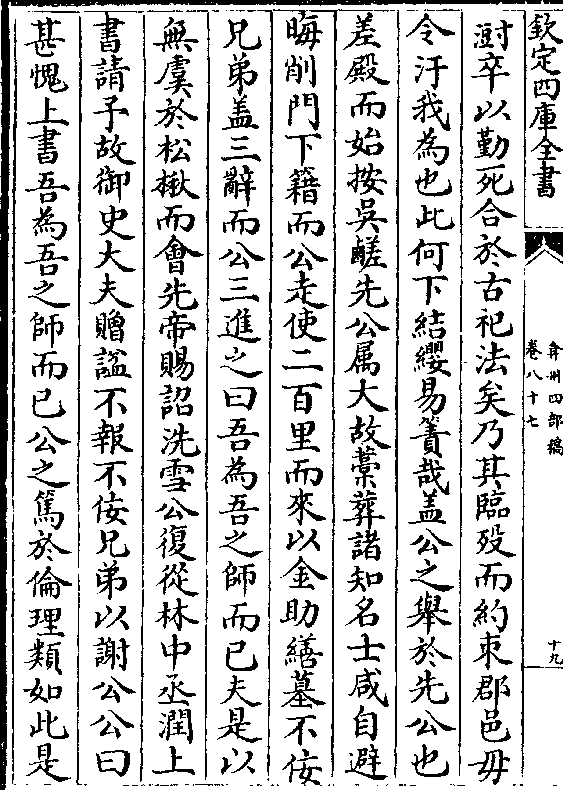 欽定四庫全書
弇州四部稿
卷八十七
十九
澍卒以勤死合於古祀法矣乃其臨歿而約束郡邑毋
令汙我為也此何下結纓易簀哉盖公之舉於先公也
差殿而始按吳鹺先公属大故藁葬諸知名士咸自避
晦削門下籍而公走使二百里而來以金助繕墓不佞
兄弟盖三辭而公三進之曰吾為吾之師而已夫是以
無虞於松楸而會先帝賜詔洗雪公復從林中丞潤上
書請予故御史大夫贈諡不報不佞兄弟以謝公公曰
甚愧上書吾為吾之師而已公之篤於倫理類如此是